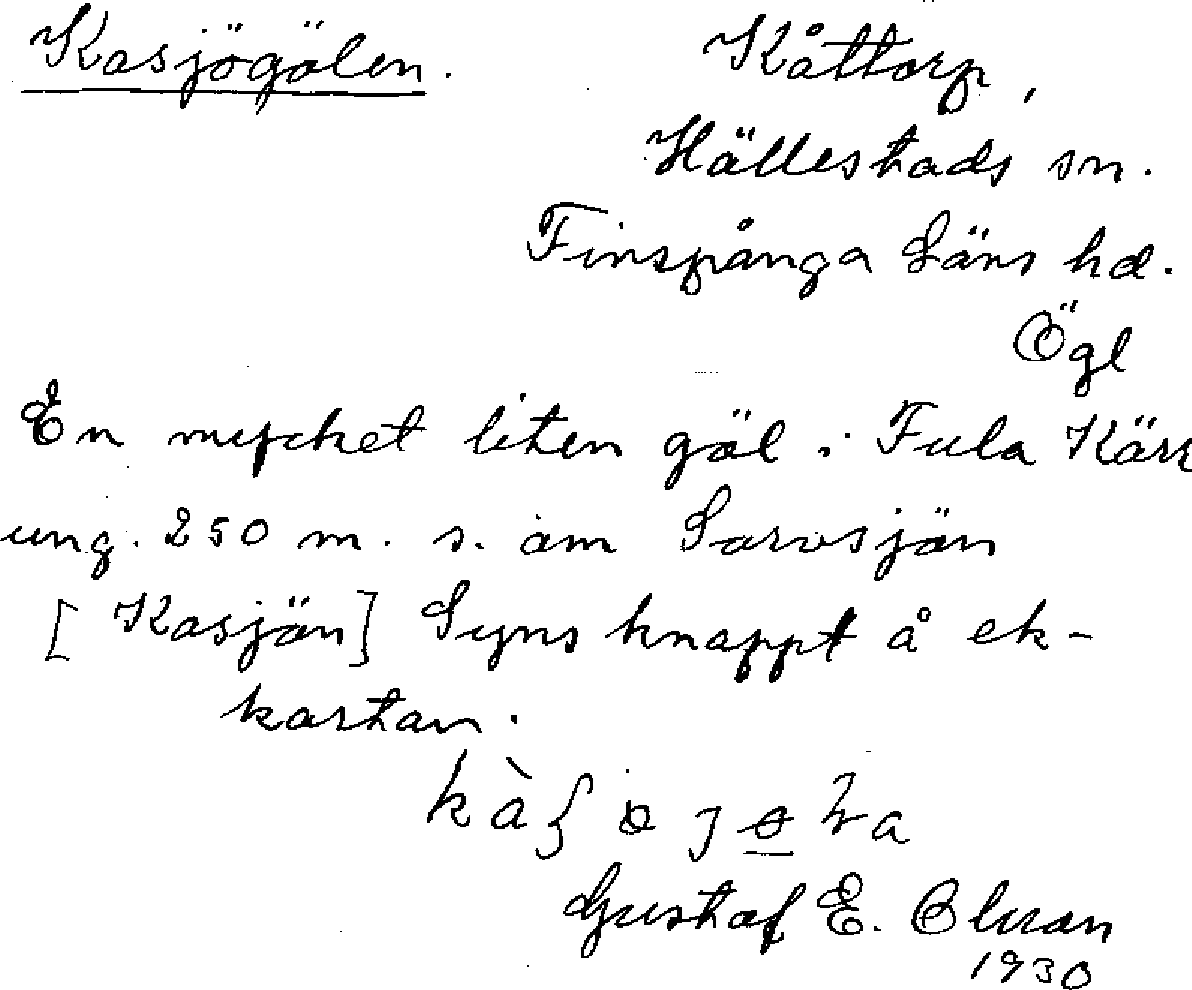 Kasjögölen. Kåttorp,
Hällestads sn.
Finspånga Läns hd.
Ögl
En mycket liten göl i Fula Kärr
ung. 250 m. s. om Sarvsjön
[Kasjön] Syns knappt å ek-
kartan.
Gustaf E.
1930